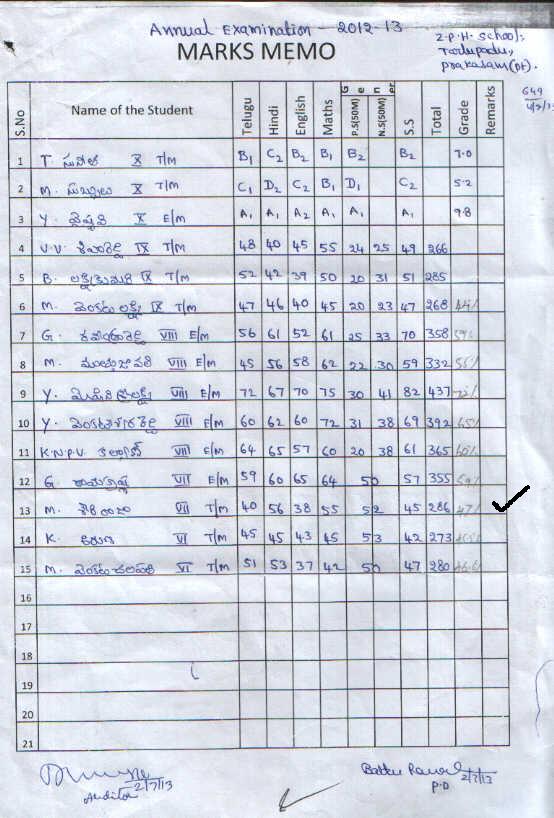 Annual Examination - 2012-13
MARKS MEMO
Z.P.H. School;
Prakasam(Dt).
649
S.No Name of the Student Telugu Hindi English Maths Gener P.S(50M) N.S(50M) S.S Total Grade Remarks
1 T. సునీత X T/M B1 C2 B2 B1 B2 B2 7.0
2 M. X T/M C1 D2 C2 B1 D1 C2 5.2
3 Y. వైష్ణవి X E/M A1 A1 A2 A1 A1 A1 9.8
4 V.V. IX T/M 48 40 45 55 24 25 49 266
5 B. లక్ష్మీకుమారి IX T/M 52 42 39 50 20 31 51 285
6 M. వెంకట లక్ష్మి IX T/M 47 46 40 45 20 23 47 268
7 G. VIII E/M 56 61 52 61 25 33 70 358
8 M. VIII E/M 45 56 58 62 22 30 59 332
9 Y. VIII E/M 72 67 70 75 30 41 82 437
10 Y. VIII E/M 60 62 60 72 31 38 69 392
11 K.N.P.V. కళ్యాణ్ VIII E/M 64 65 57 60 20 38 61 365
12 G. VII E/M 59 60 65 64 50 57 355
13 M. VII T/M 40 56 38 55 52 45 286
14 K. కిరణ్ VI T/M 45 45 43 45 53 42 273
15 M. వెంకట చలపతి VI T/M 51 53 37 42 50 47 280
16
17
18
19
20
21
2/7/13
Auditor
2/7/13
P.D